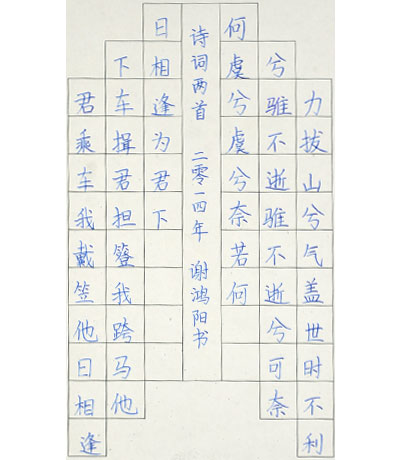 力拔山兮气盖世时不利
兮骓不逝骓不逝兮可奈
何虞兮虞兮奈若何
诗词两首 二零一四年 谢鸿阳书
君乘车我戴笠他日相逢
下车揖君担簦我跨马他
日相逢为君下